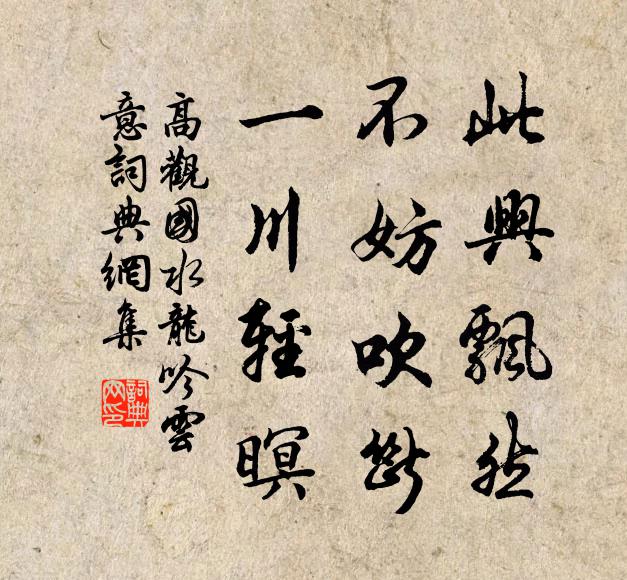 此興飄然
不妨吹斷
一川輕暝
高觀國水龍吟雲
意詞典網集
詞典
网印